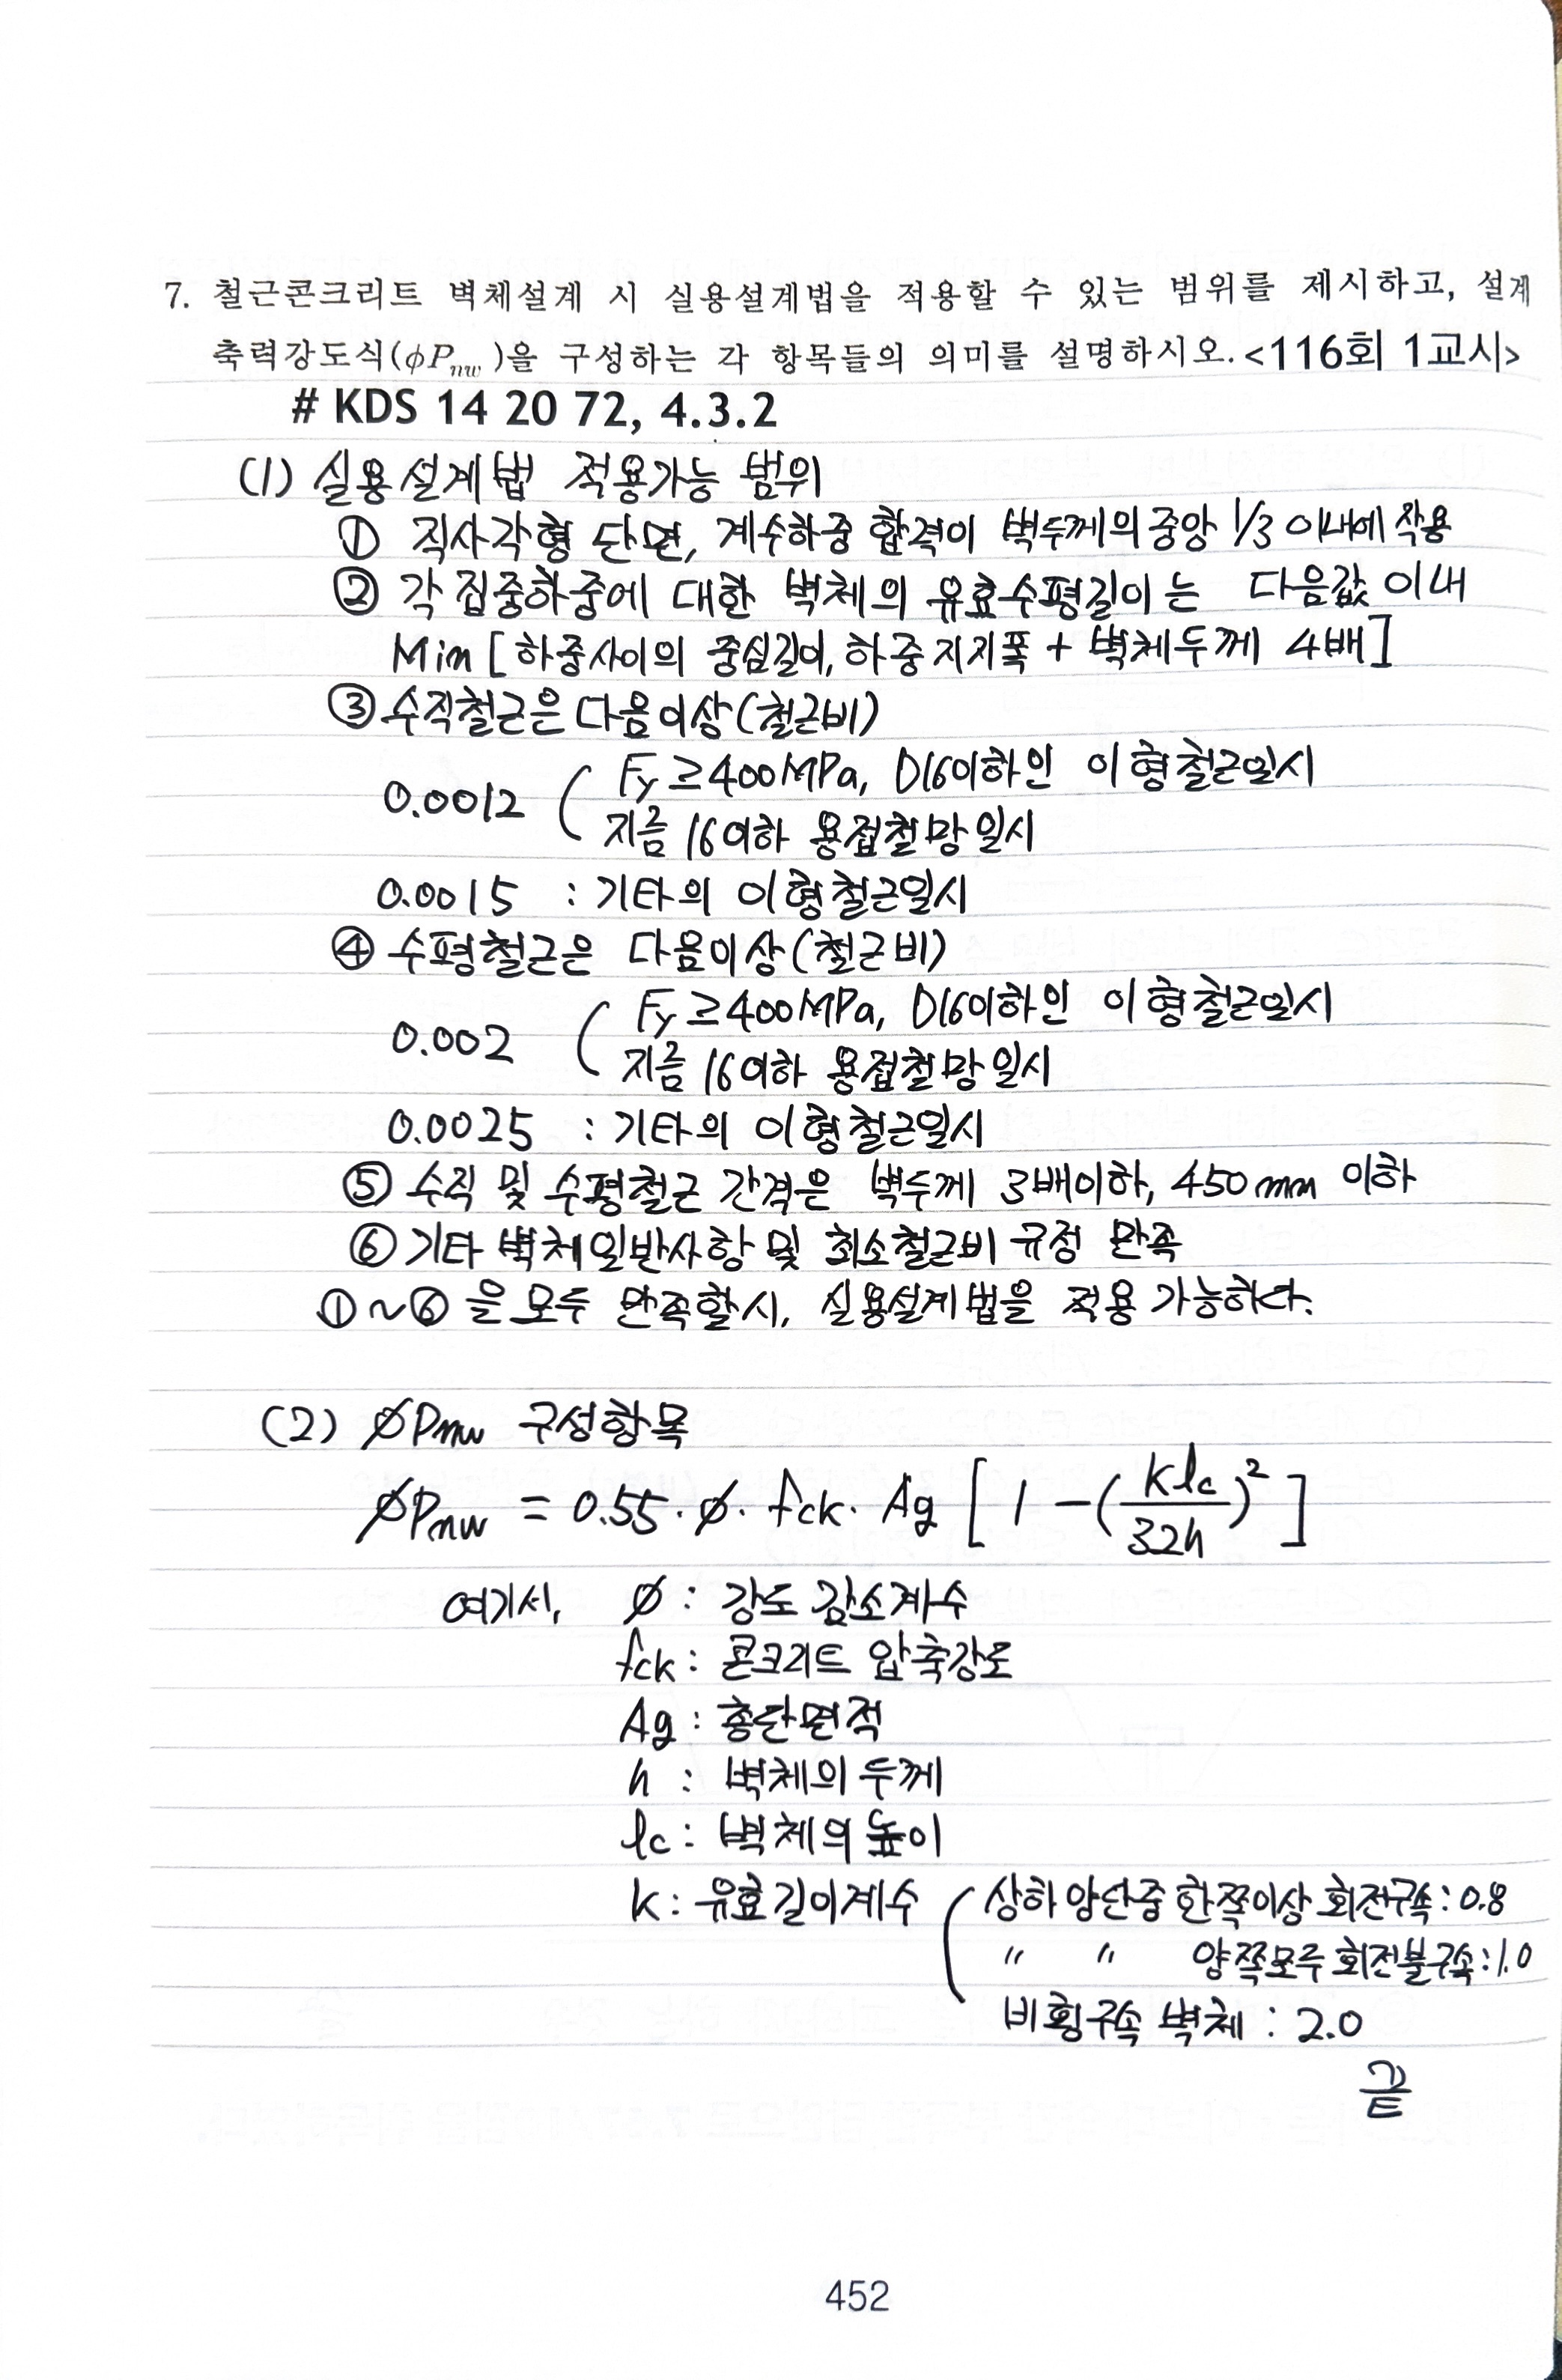 7. 철근콘크리트 벽체설계 시 실용설계법을 적용할 수 있는 범위를 제시하고, 설계
축력강도식(ϕPnw)을 구성하는 각 항목들의 의미를 설명하시오.<116회 1교시>
# KDS 14 20 72, 4.3.2
(1) 실용설계법 적용가능 범위
① 직사각형 단면, 계수하중 합력이 벽두께의 중앙 1/3 이내에 작용
② 각 집중하중에 대한 벽체의 유효수평길이는 다음값 이내
Min [하중사이의 중심길이, 하중지지폭 + 벽체두께 4배]
③ 수직철근은 다음이상(철근비)
0.0012 ( Fy ≥ 400MPa, D16이하인 이형철근일시
지름 16이하 용접철망일시
0.0015 : 기타의 이형철근일시
④ 수평철근은 다음이상(철근비)
0.002 ( Fy ≥ 400MPa, D16이하인 이형철근일시
지름 16이하 용접철망일시
0.0025 : 기타의 이형철근일시
⑤ 수직 및 수평철근 간격은 벽두께 3배이하, 450mm 이하
⑥ 기타 벽체일반사항 및 최소철근비 규정 만족
①~⑥을 모두 만족할시, 실용설계법을 적용 가능하다.
(2) ϕPnw 구성항목
ϕPnw = 0.55·ϕ·fck·Ag [1-(klc/32h)²]
여기서, ϕ : 강도감소계수
fck : 콘크리트 압축강도
Ag : 총단면적
h : 벽체의 두께
lc : 벽체의 높이
k : 유효길이계수 ( 상하 양단중 한쪽이상 회전구속 : 0.8
〃 〃 양쪽모두 회전불구속 : 1.0
비횡구속 벽체 : 2.0
끝
452